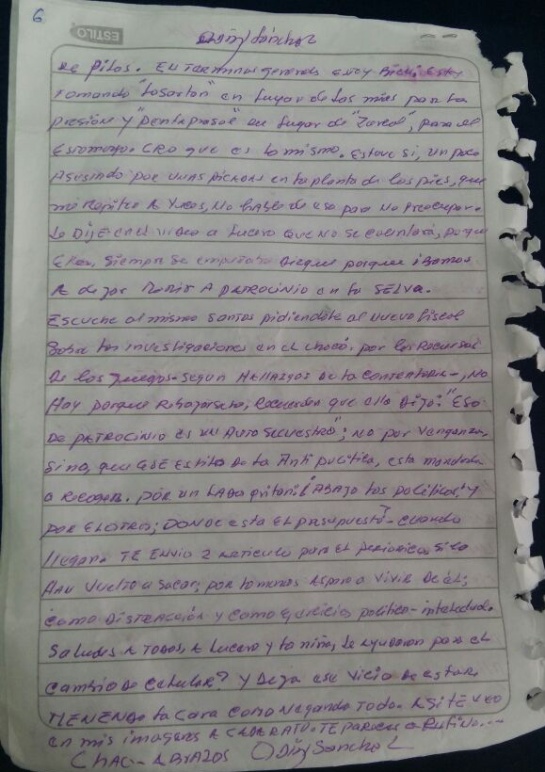 6
ESTILO
Odín Sánchez
de pilos. En terminos generales estoy bien. Estoy
tomando "Losartan" en lugar de los mios para la
presión y "pentaprasol" en lugar de " ", para el
Estomago. CRO que es lo mismo. Estuve si, un poco
por unas en la planta de los pies, que
me Repitió A veces, No hable de eso para No preocuparlo
Lo Dije en el video a Lucero que No se
Ellas, Siempre se porque ibamos
A dejar morir A PATROCINIO en la SELVA.
Escuche al mismo Santos pidiendole al nuevo fiscal
sobre las investigaciones en el choco. por los Recursos
de los juegos - segun Hallazgos de la Contraloria -, No
Hay porque , Recuerden que ella Dijo: "ESO
De PATROCINIO es un Auto SECUESTRO"; No por venganza,
sino, que ESE Estilo De la Anti politica, esta mandada
a Recoger. por un LADO gritan: "ABAJO los politicos" y
por EL OTRO; DONDE esta EL presupuesto - cuando
llegan. TE ENVIO 2 Articulo para EL periodico, si lo
Han vuelto a Sacar; por lo menos Aspiro a vivir De él;
como DISTRACCIÓN y como EJERCICIO politico - intelectual.
Saludes A TODOS, A Lucero y la niña, Le ayudaron para el
Cambio de Celular? y Deja ese vicio de estar
la Cara como Negando Todo. Asi TE VEO
en mis imagenes A CADA RATO. TE pareces a Rufino...
CHAO - ABRAZOS Odín Sánchez